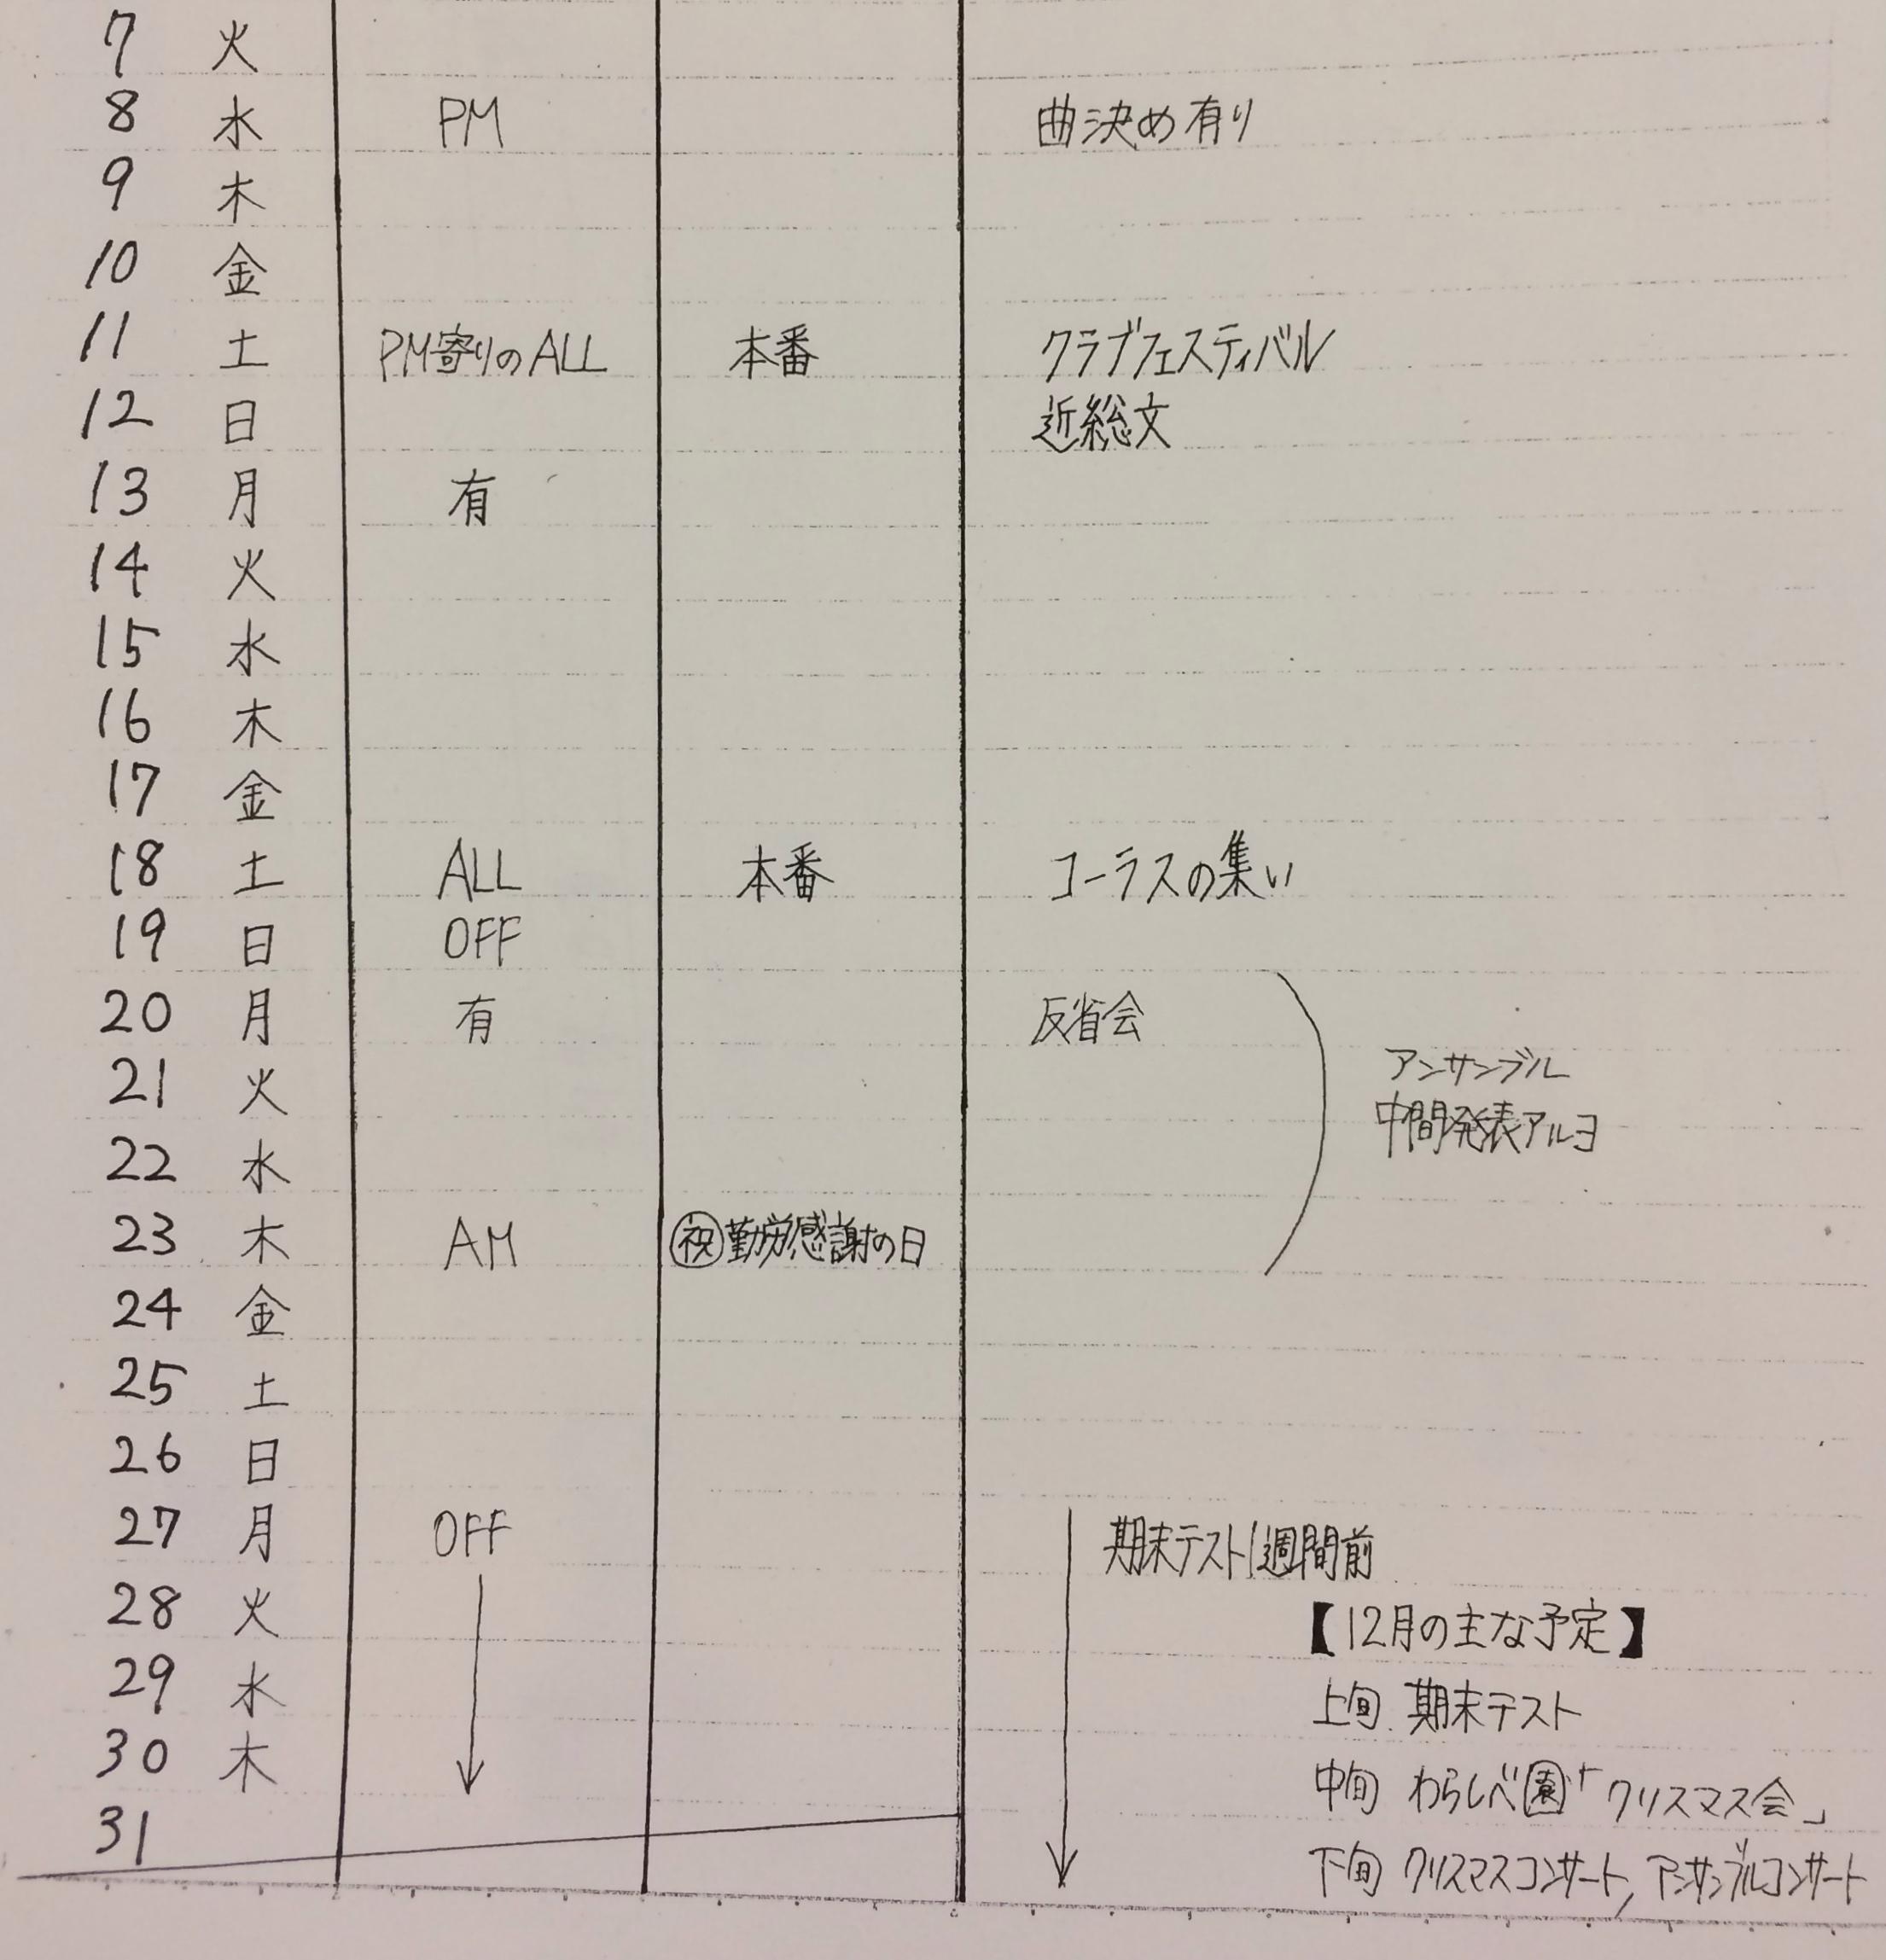 7 火
8 水 PM 曲決め有り
9 木
10 金
11 土 PM寄りのALL 本番 クラブフェスティバル
12 日 近総文
13 月 有
14 火
15 水
16 木
17 金
18 土 ALL 本番 コーラスの集い
19 日 OFF
20 月 有 反省会
21 火 アンサンブル
22 水 中間発表アルヨ
23 木 AM ㊗勤労感謝の日
24 金
25 土
26 日
27 月 OFF 期末テスト1週間前
28 火 【12月の主な予定】
29 水 上旬 期末テスト
30 木 中旬 わらしべ園「クリスマス会」
31 下旬 クリスマスコンサート, アンサンブルコンサート